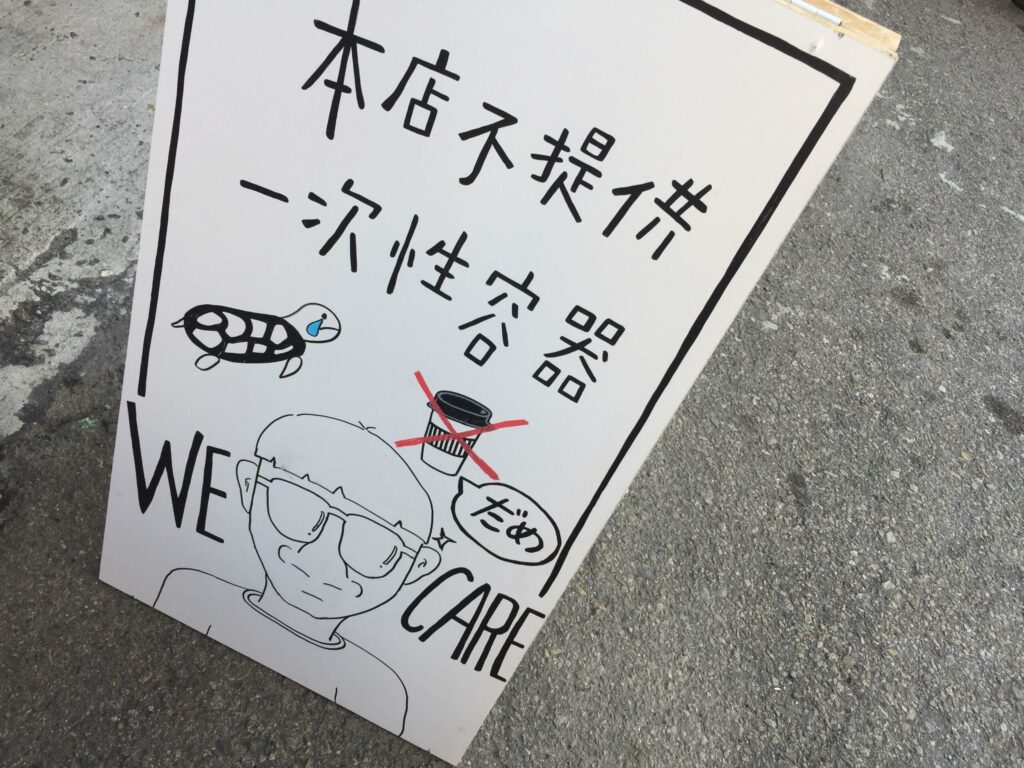 本店不提供
一次性容器
だめ
WE
CARE